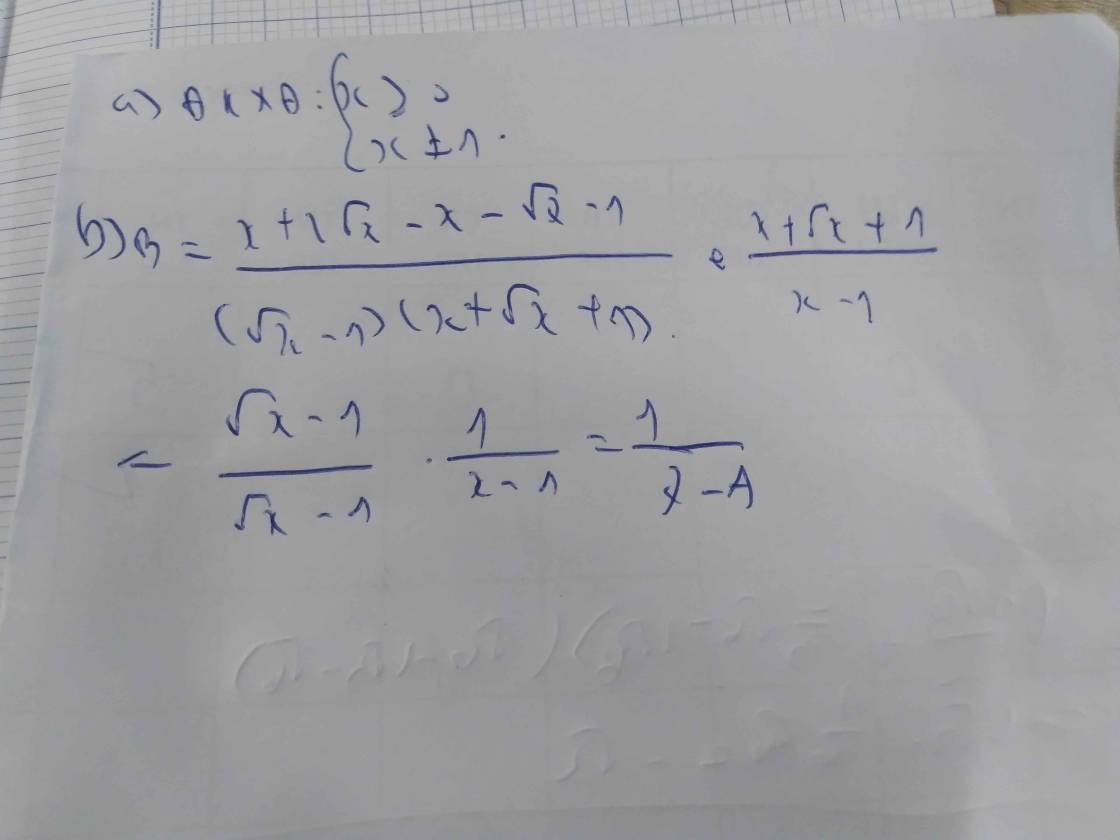 a) ĐKXĐ: { x ≥ 0
x ≠ 1.
b) B = (x + 2√x - x - √x - 1) / ((√x - 1)(x + √x + 1)) . (x + √x + 1) / (x - 1)
= (√x - 1) / (√x - 1) . 1 / (x - 1) = 1 / (x - 1)